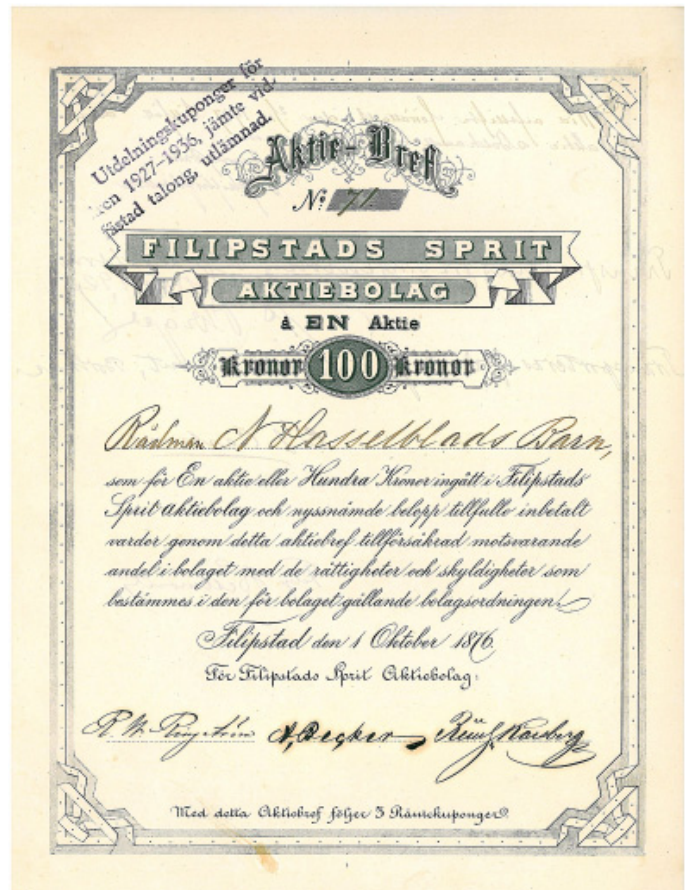 Utdelningskuponger för
åren 1927–1936, jämte vid-
fästad talong, utlämnad.
Aktie-Bref
No 71.
FILIPSTADS SPRIT
AKTIEBOLAG
á EN Aktie
Kronor 100 Kronor
Rådman N Hasselblads Barn,
som för En aktie eller Hundra Kronor ingått i Filipstads
Sprit Aktiebolag och nyssnämde belopp tillfullo inbetalt
varder genom detta aktiebref tillförsäkrad motsvarande
andel i bolaget med de rättigheter och skyldigheter som
bestämmes i den för bolaget gällande bolagsordningen.
Filipstad den 1 Oktober 1876.
För Filipstads Sprit Aktiebolag:
A. Becker
Med detta Aktiebref följer 5 Räntekuponger.